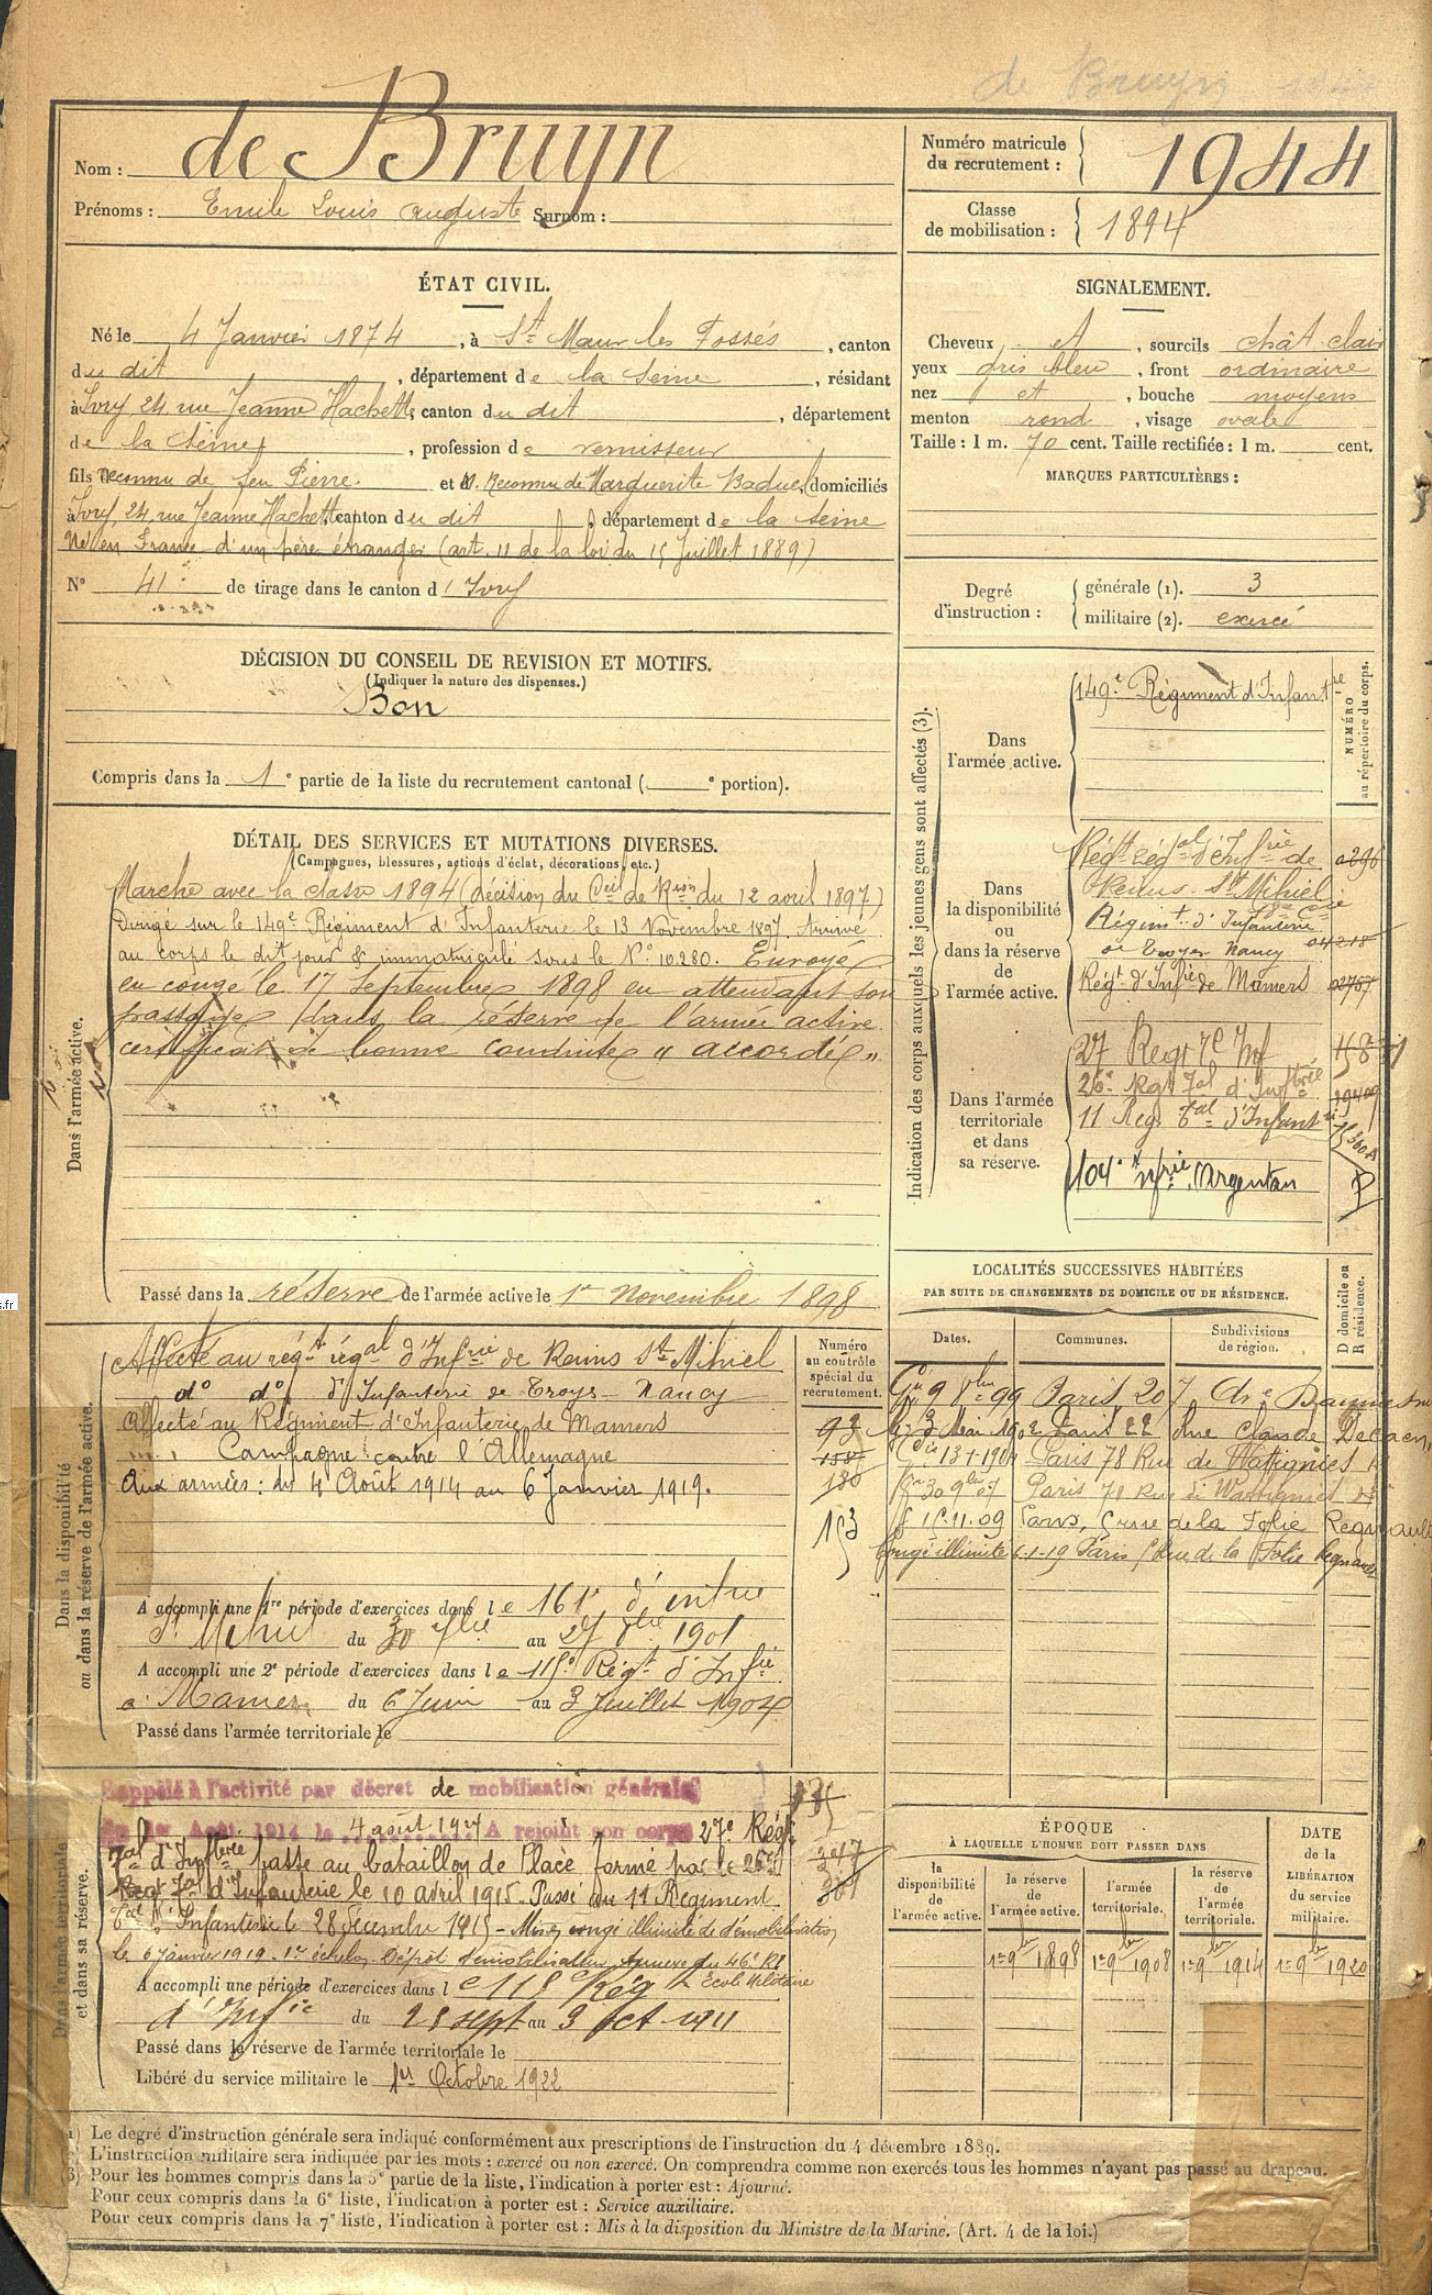 de Bruyn 1944
Nom : de Bruyn
Prénoms : Emile Louis Auguste Surnom :
Numéro matricule
du recrutement : 1944
Classe
de mobilisation : 1894
ÉTAT CIVIL.
Né le 4 Janvier 1874, à St Maur les Fossés, canton
du dit, département de la Seine, résidant
à Ivry 24 rue Jeanne Hachette canton du dit, département
de la Seine, profession de vernisseur
fils reconnu de feu Pierre et d. Reconnu de Marguerite Baduel domiciliés
à Ivry, 24, rue Jeanne Hachette canton du dit, département de la Seine
Né en France d'un père étranger (art. 11 de la loi du 15 Juillet 1889)
N° 41 de tirage dans le canton d'Ivry
SIGNALEMENT.
Cheveux et, sourcils chât. clair
yeux gris bleu, front ordinaire
nez et, bouche moyens
menton rond, visage ovale
Taille : 1 m. 70 cent. Taille rectifiée : 1 m. cent.
MARQUES PARTICULIÈRES :
Degré
d'instruction :
générale (1). 3
militaire (2). exercé
DÉCISION DU CONSEIL DE REVISION ET MOTIFS.
(Indiquer la nature des dispenses.)
Bon
Compris dans la 1e partie de la liste du recrutement cantonal ( e portion).
DÉTAIL DES SERVICES ET MUTATIONS DIVERSES.
(Campagnes, blessures, actions d'éclat, décorations, etc.)
Dans l'armée active.
Marche avec la classe 1894 (décision du Ceil de Rion du 12 avril 1897)
Dirigé sur le 149e Régiment d'Infanterie le 13 Novembre 1897. Arrivé
au corps le dit jour & immatriculé sous le N° 10280. Envoyé
en congé le 17 Septembre 1898 en attendant son
passage dans la réserve de l'armée active
certificat de bonne conduite "accordé"
Passé dans la réserve de l'armée active le 1er novembre 1898
Indication des corps auxquels les jeunes gens sont affectés (3).
NUMÉRO
au répertoire du corps.
Dans
l'armée active.
149e Régiment d'Infantrie
Dans
la disponibilité
ou
dans la réserve
de
l'armée active.
Régt régal d'Infrie de
Reims-St Mihiel
Régimt d'Infanterie
de Troyes Nancy
Régt d'Infie de Mamers
Dans l'armée
territoriale
et dans
sa réserve.
27 Regt Te Inf
26e Rgt Tal d'Inftrie
11 Reg Tal d'Infantrie
104e Infrie Argentan
LOCALITÉS SUCCESSIVES HABITÉES
PAR SUITE DE CHANGEMENTS DE DOMICILE OU DE RÉSIDENCE.
D domicile ou
R résidence.
Dates. Communes. Subdivisions
de région.
9 8bre 99 Paris 207
3 Mai 1902 Paris 22 Rue Claude Decaen
13-1-1904 Paris 78 Rue de Wattignies
30 9bre 07 Paris 71 Rue de Wattignies
15.11.09 Paris, 5 rue de la Folie Regnault
Congé illimité 6-1-19 Paris 5 Rue de la Folie Regnault
Dans la disponibilité
ou dans la réserve de l'armée active.
Numéro
au contrôle
spécial du
recrutement.
Affecté au régt régal d'Infrie de Reims St Mihiel
do do d'Infanterie de Troyes-Nancy
Affecté au Régiment d'Infanterie de Mamers
Campagne contre l'Allemagne
Aux armées : du 4 Août 1914 au 6 Janvier 1919.
93
180
153
A accompli une 1re période d'exercices dans le 161e d'Infrie
St Mihiel du 30 7bre au 27 8bre 1901
A accompli une 2e période d'exercices dans le 115e Régt d'Infie
à Mamers du 6 Juin au 3 Juillet 1904
Passé dans l'armée territoriale le
Dans l'armée territoriale
et dans sa réserve.
Rappelé à l'activité par décret de mobilisation générale
du 1er Août 1914 le 4 août 1914 A rejoint son corps 27e Régt
Tal d'Inftrie passe au bataillon de Place formé par le 26e
Regt Tal d'Infanterie le 10 avril 1915. Passé au 11 Régiment
Tal d'Infanterie le 28 décembre 1915 - Mis en congé illimité de démobilisation
le 6 janvier 1919 1er échelon Dépôt démobilisateur Annexe du 46e RI
Ecole Militaire
347
A accompli une période d'exercices dans le 115e Rég
d'Infie du 25 sept au 3 oct 1911
Passé dans la réserve de l'armée territoriale le
Libéré du service militaire le 1er Octobre 1922
ÉPOQUE
À LAQUELLE L'HOMME DOIT PASSER DANS
DATE
de la
LIBÉRATION
du service
militaire.
la
disponibilité
de
l'armée active.
la réserve
de
l'armée active.
l'armée
territoriale.
la réserve
de
l'armée
territoriale.
1er 9bre 1898 1er 9bre 1908 1er 9bre 1914 1er 9bre 1920
(1) Le degré d'instruction générale sera indiqué conformément aux prescriptions de l'instruction du 4 décembre 1889.
L'instruction militaire sera indiquée par les mots : exercé ou non exercé. On comprendra comme non exercés tous les hommes n'ayant pas passé au drapeau.
(3) Pour les hommes compris dans la 5e partie de la liste, l'indication à porter est : Ajourné.
Pour ceux compris dans la 6e liste, l'indication à porter est : Service auxiliaire.
Pour ceux compris dans la 7e liste, l'indication à porter est : Mis à la disposition du Ministre de la Marine. (Art. 4 de la loi.)
s.fr